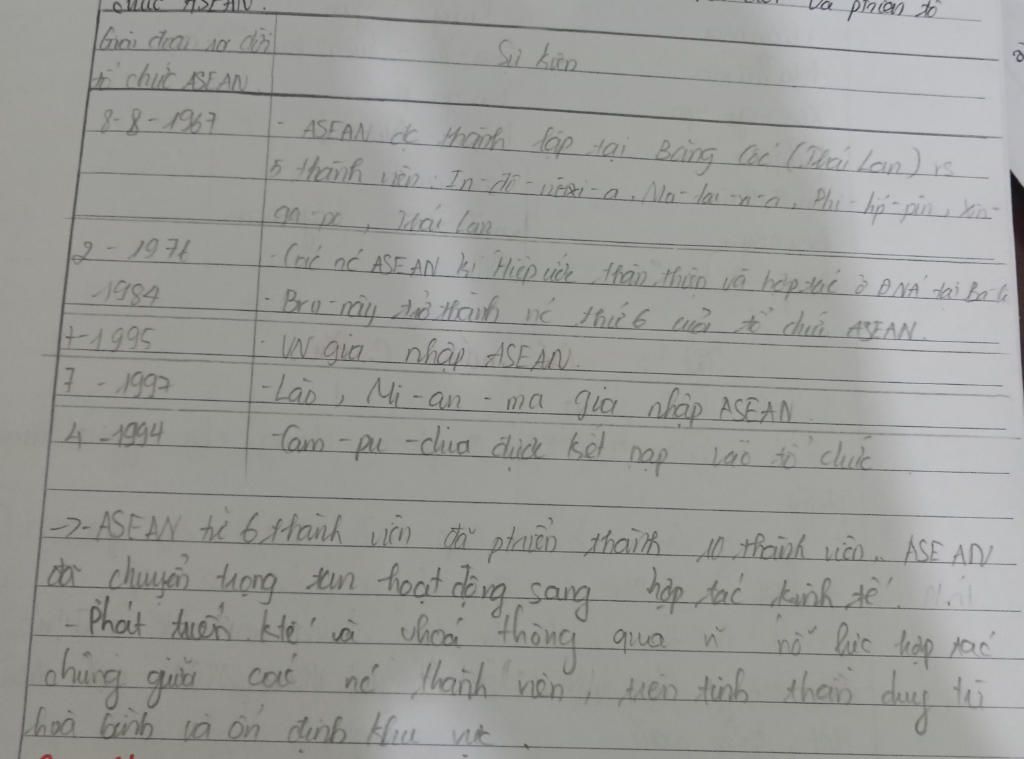 chức ASEAN.
và phien tô
Giai đoạn ra đời
Sự kiện
tổ chức ASEAN
8-8-1967
- ASEAN đc thành lập tại Băng Cốc (Thái Lan) vs
5 thành viên: In-đô-nêxi-a, Ma-lai-xi-a, Phi-líp-pin, Xin-
ga-po, Thái Lan
2 - 1976
- Các nc ASEAN kí Hiệp ước thân thiện và hợp tác ở ĐNÁ tại Ba-li
-1984
- Bru-nây trở thành nc thứ 6 của tổ chức ASEAN.
7-1995
- VN gia nhập ASEAN.
7 - 1997
- Lào, Mi-an-ma gia nhập ASEAN
4 -1994
-Cam-pu-chia được kết nạp vào tổ chức
->- ASEAN từ 6 thành viên đã phtriển thành 10 thành viên. ASEAN
đã chuyển trọng tâm hoạt động sang hợp tác kinh tế.
- Phát triển ktế và vhoá thông qua n~ nỗ lực hợp tác
chung giữa các nc thành viên, trên tinh thần duy trì
hoà bình và ổn định khu vực.